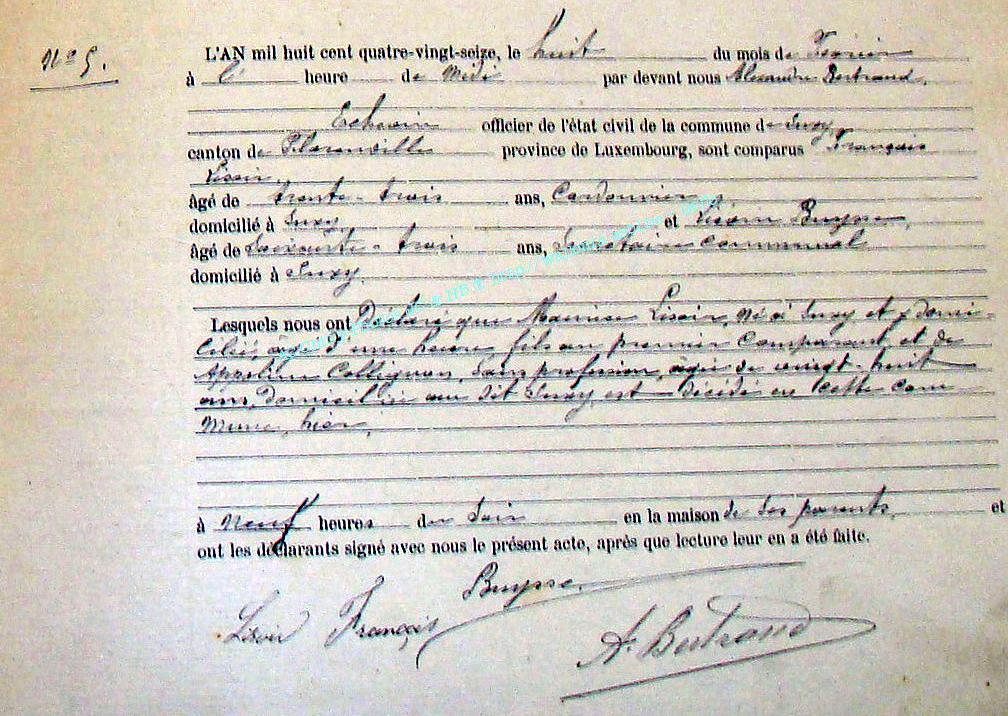 Nº 5.
L'AN mil huit cent quatre-vingt-seize, le huit du mois de Février
à l' heure de Midi par devant nous Alexandre Bertrand,
Echevin officier de l'état civil de la commune de Suxy
canton de Florenville province de Luxembourg, sont comparus François
Lissoir
âgé de trente-trois ans, Cordonnier
domicilié à Suxy et Buysse,
âgé de Soixante-trois ans, Secrétaire Communal
domicilié à Suxy.
Lesquels nous ont Déclaré que Maurice Lissoir, né à Suxy et y domi-
cilié, âgé d'une heure fils du premier Comparant et de
Appoline Collignon, Sans profession, âgée de vingt-huit
ans, domiciliée au dit Suxy, est décédé en cette com
mune, hier,
à neuf heures du Soir en la maison de Ses parents, et
ont les déclarants signé avec nous le présent acte, après que lecture leur en a été faite.
Buysse
Lissoir François
A. Bertrand